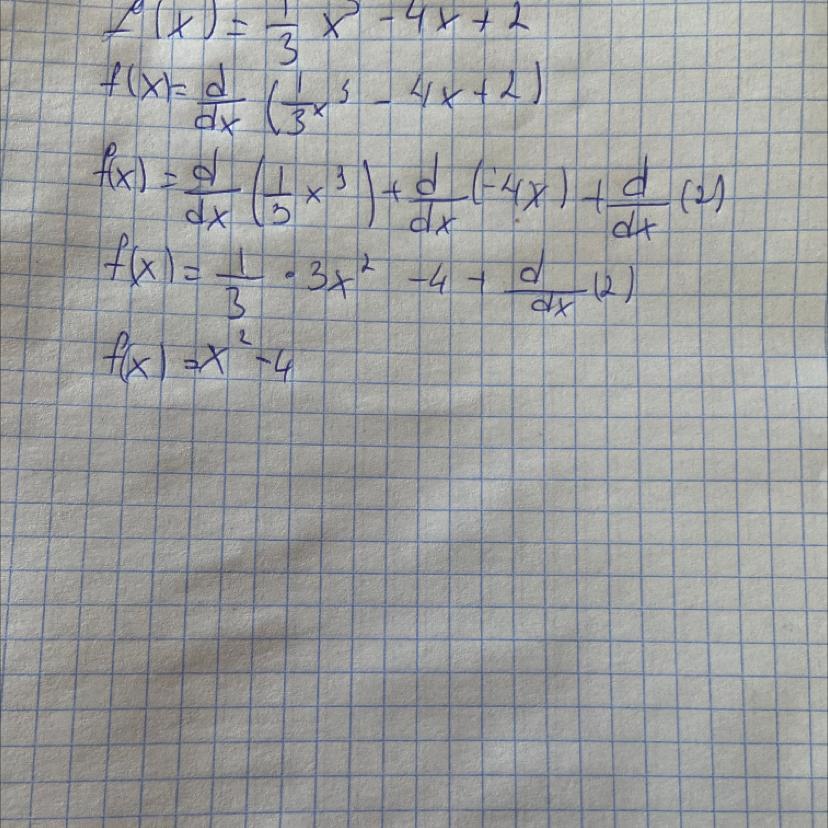 f(x) = 1/3 x³ - 4x + 2
f(x) = d/dx (1/3 x³ - 4x + 2)
f(x) = d/dx (1/3 x³) + d/dx (-4x) + d/dx (2)
f(x) = 1/3 · 3x² - 4 + d/dx (2)
f(x) = x² - 4